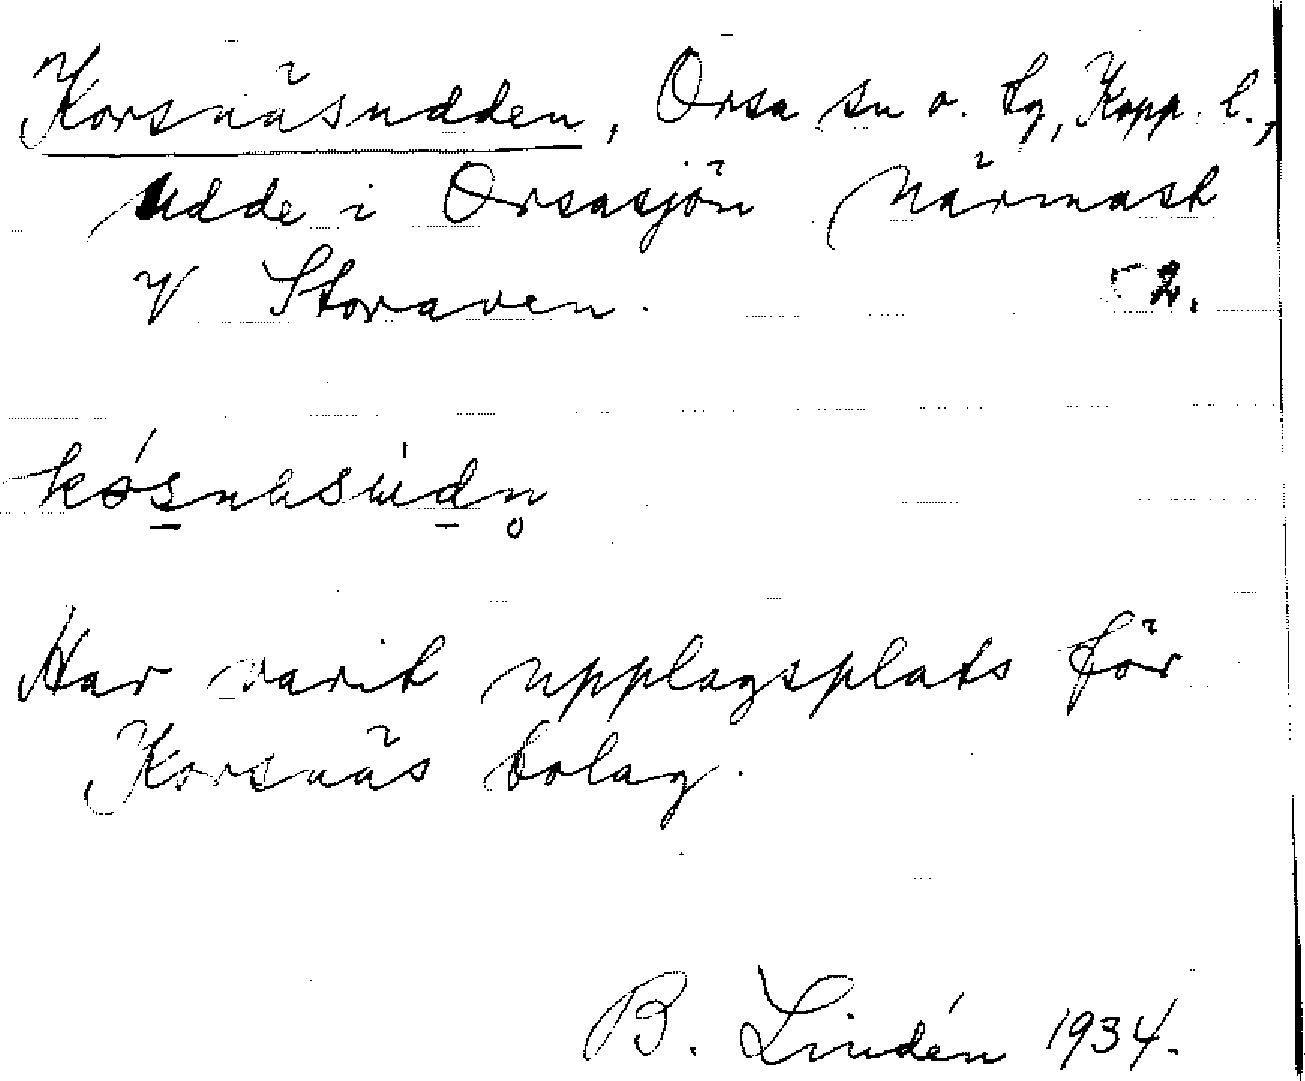 Korsnäsudden, Orsa sn o. tg, Kopp. l.,
udde i Orsasjön närmast
V Storaven. 52.
Har varit upplagsplats för
Korsnäs bolag.
B. Lindén 1934.